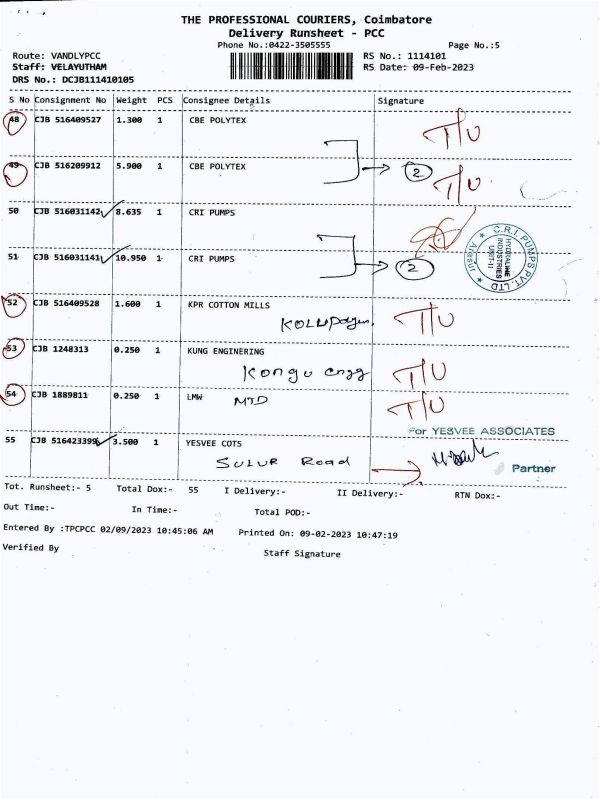 THE PROFESSIONAL COURIERS, Coimbatore
Delivery Runsheet - PCC
Phone No.:0422-3505555 Page No.:5
Route: VANDLYPCC RS No.: 1114101
Staff: VELAYUTHAM RS Date: 09-Feb-2023
DRS No.: DCJB111410105
S No Consignment No Weight PCS Consignee Details Signature
48 CJB 516409527 1.300 1 CBE POLYTEX T/U
49 CJB 516209912 5.900 1 CBE POLYTEX 2 T/U
50 CJB 516031142 8.635 1 CRI PUMPS
C.R.I PUMPS PVT. LTD
HYDRALINE
INDUSTRIES
UNIT-II
Arasur
51 CJB 516031141 10.950 1 CRI PUMPS 2
52 CJB 516409528 1.600 1 KPR COTTON MILLS T/U
53 CJB 1248313 0.250 1 KUNG ENGINERING
Kongu engg T/U
54 CJB 1889811 0.250 1 LMW MTD T/U
For YESVEE ASSOCIATES
55 CJB 516423399 3.500 1 YESVEE COTS
SULUR Road Partner
Tot. Runsheet:- 5 Total Dox:- 55 I Delivery:- II Delivery:- RTN Dox:-
Out Time:- In Time:- Total POD:-
Entered By :TPCPCC 02/09/2023 10:45:06 AM Printed On: 09-02-2023 10:47:19
Verified By Staff Signature